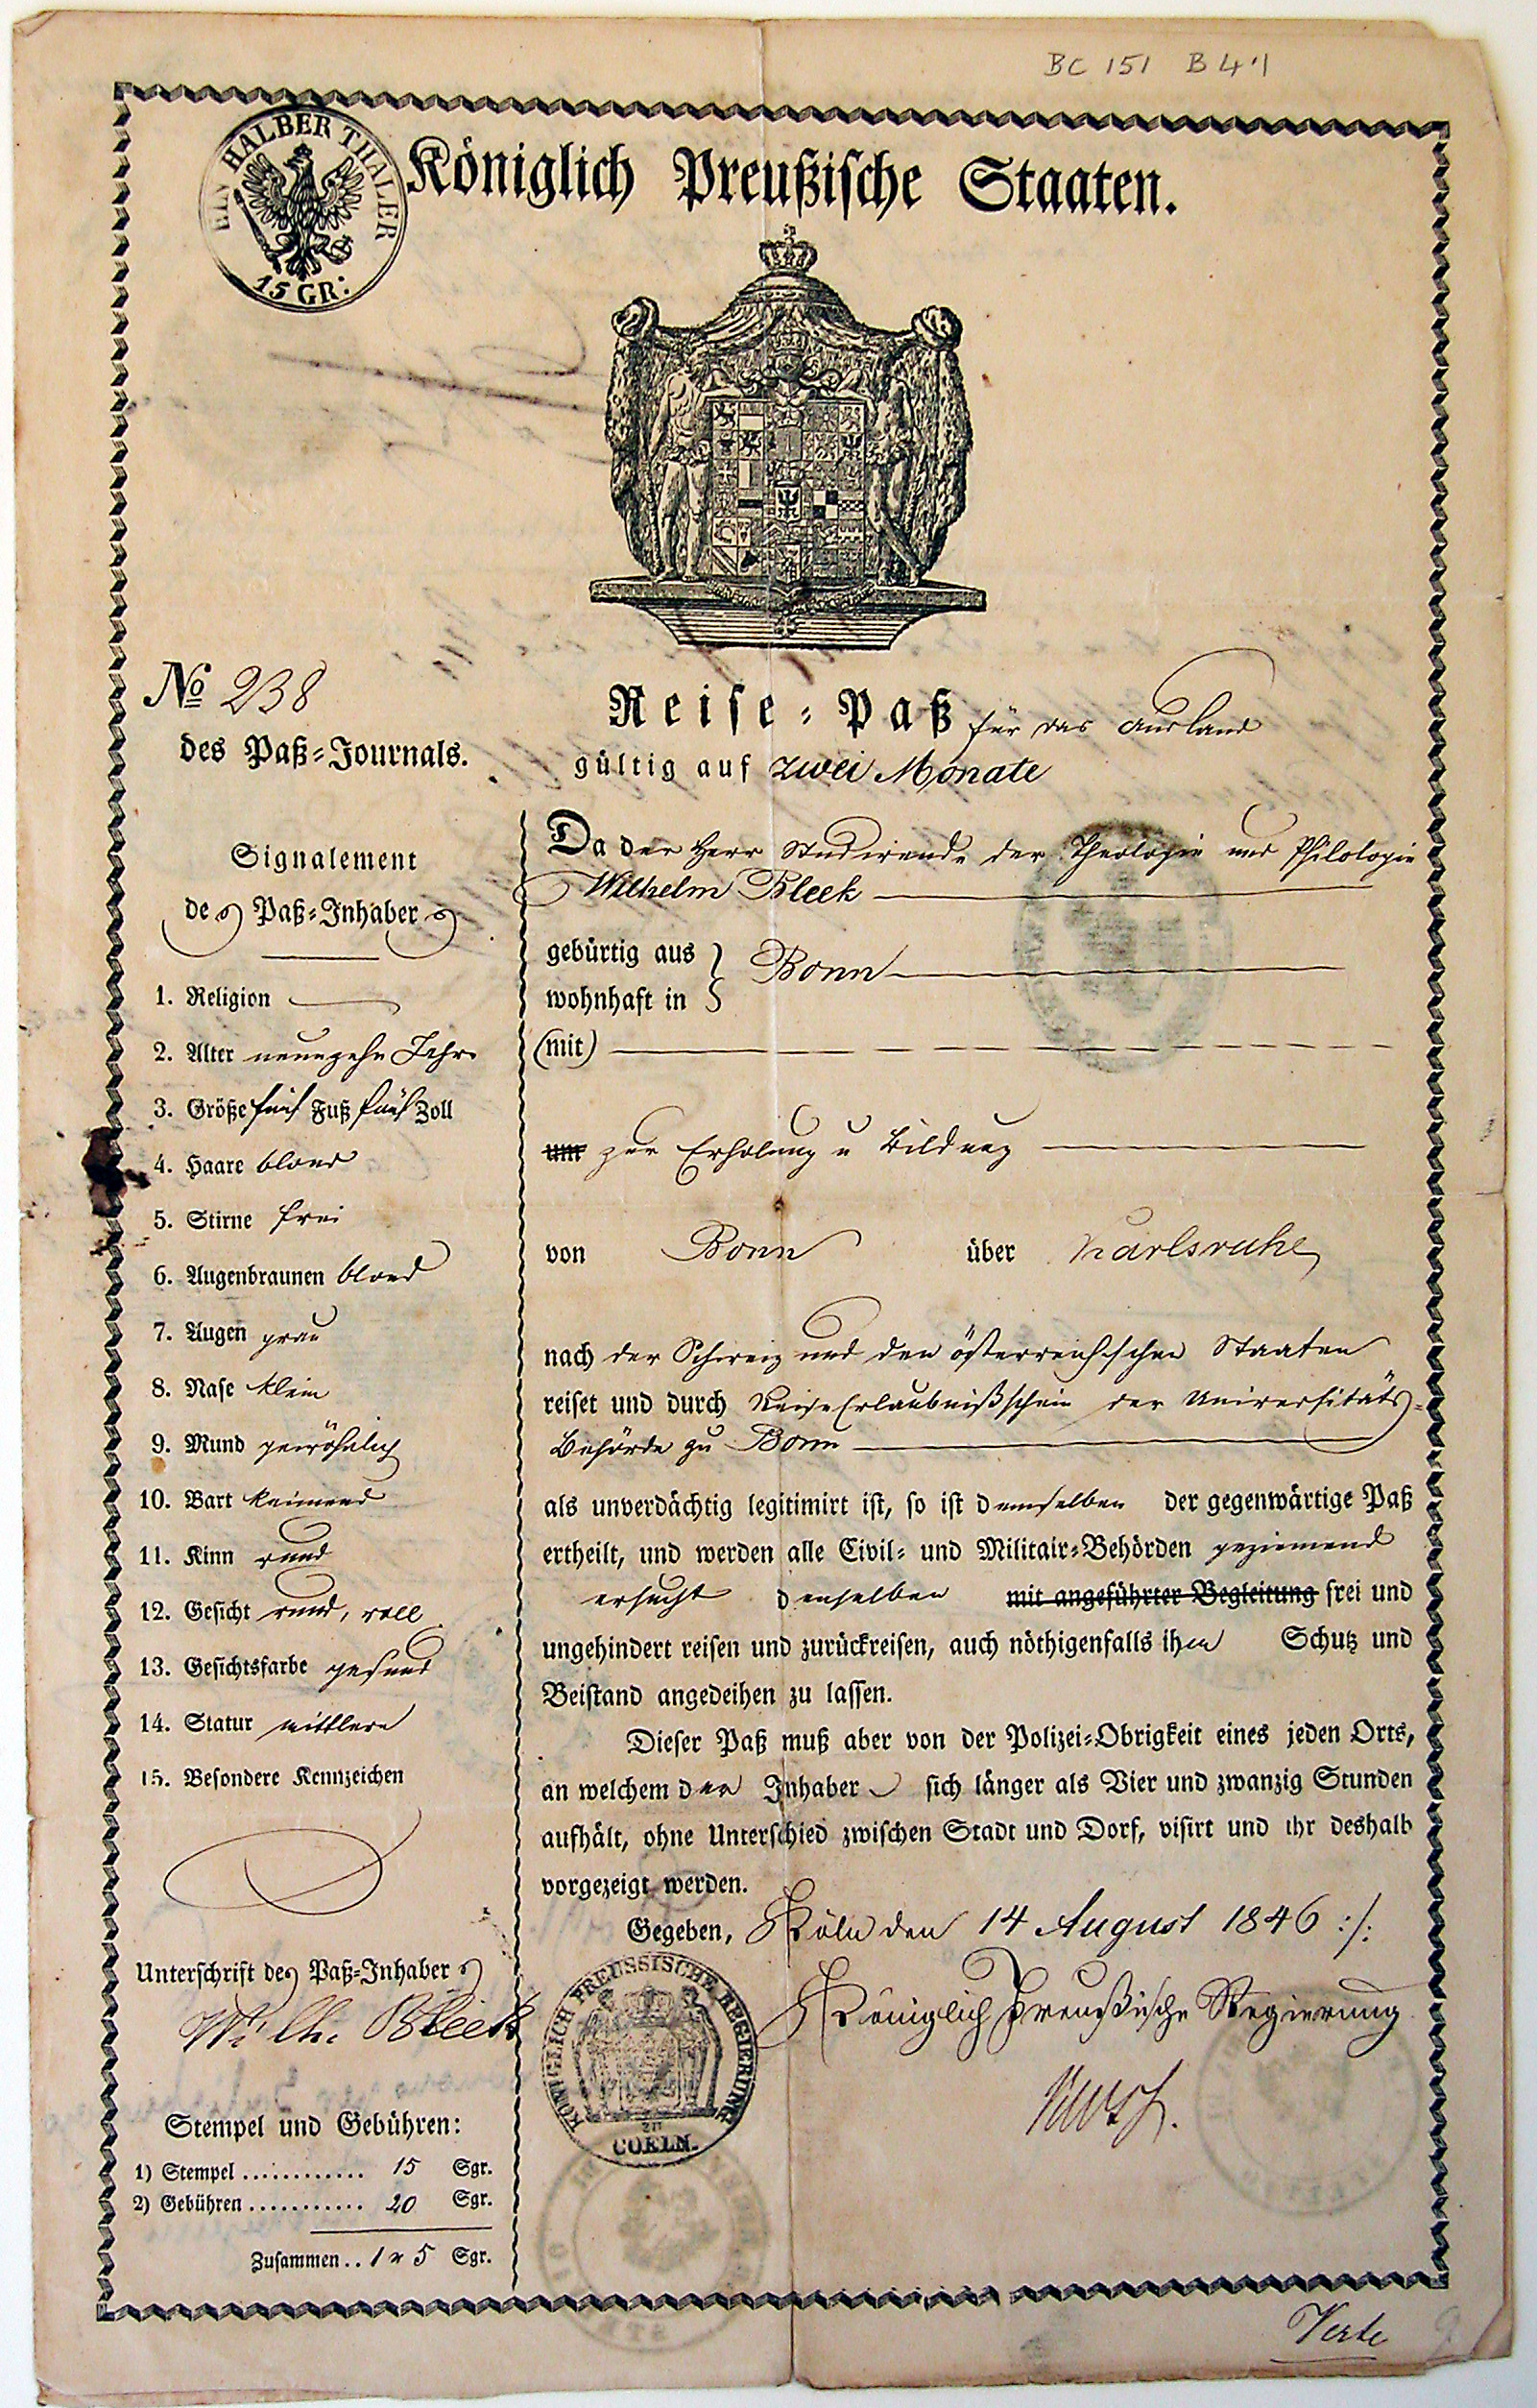 BC 151 B4.1
EIN HALBER THALER
15 GR:
Königlich Preußische Staaten.
No 238
des Paß-Journals.
Reise-Paß für das Ausland
gültig auf zwei Monate
Signalement
des Paß-Inhabers
1. Religion
2. Alter neunzehn Jahr
3. Größe fünf Fuß fünf Zoll
4. Haare blond
5. Stirne frei
6. Augenbraunen blond
7. Augen grau
8. Nase klein
9. Mund gewöhnlich
10. Bart keimend
11. Kinn rund
12. Gesicht rund, voll
13. Gesichtsfarbe gesund
14. Statur mittlere
15. Besondere Kennzeichen
Unterschrift des Paß-Inhabers
Wilh. Bleek
Stempel und Gebühren:
1) Stempel ............ 15 Sgr.
2) Gebühren ........... 20 Sgr.
Zusammen .. 1 r 5 Sgr.
Da der Herr Studirende der Theologie und Philologie
Wilhelm Bleek
gebürtig aus } Bonn
wohnhaft in
(mit)
um zur Erholung u Bildung
von Bonn über Karlsruhe
nach der Schweiz und den österreichischen Staaten
reiset und durch Reise Erlaubnißschein der Universitäts-
Behörde zu Bonn
als unverdächtig legitimirt ist, so ist demselben der gegenwärtige Paß
ertheilt, und werden alle Civil- und Militair-Behörden geziemend
ersucht denselben mit angeführter Begleitung frei und
ungehindert reisen und zurückreisen, auch nöthigenfalls ihm Schutz und
Beistand angedeihen zu lassen.
Dieser Paß muß aber von der Polizei-Obrigkeit eines jeden Orts,
an welchem der Inhaber sich länger als Vier und zwanzig Stunden
aufhält, ohne Unterschied zwischen Stadt und Dorf, visirt und ihr deshalb
vorgezeigt werden.
Gegeben, Köln den 14 August 1846 :/:
Königlich Preußische Regierung
KÖNIGLICH PREUSSISCHE REGIERUNG
ZU
COELN.
Verte